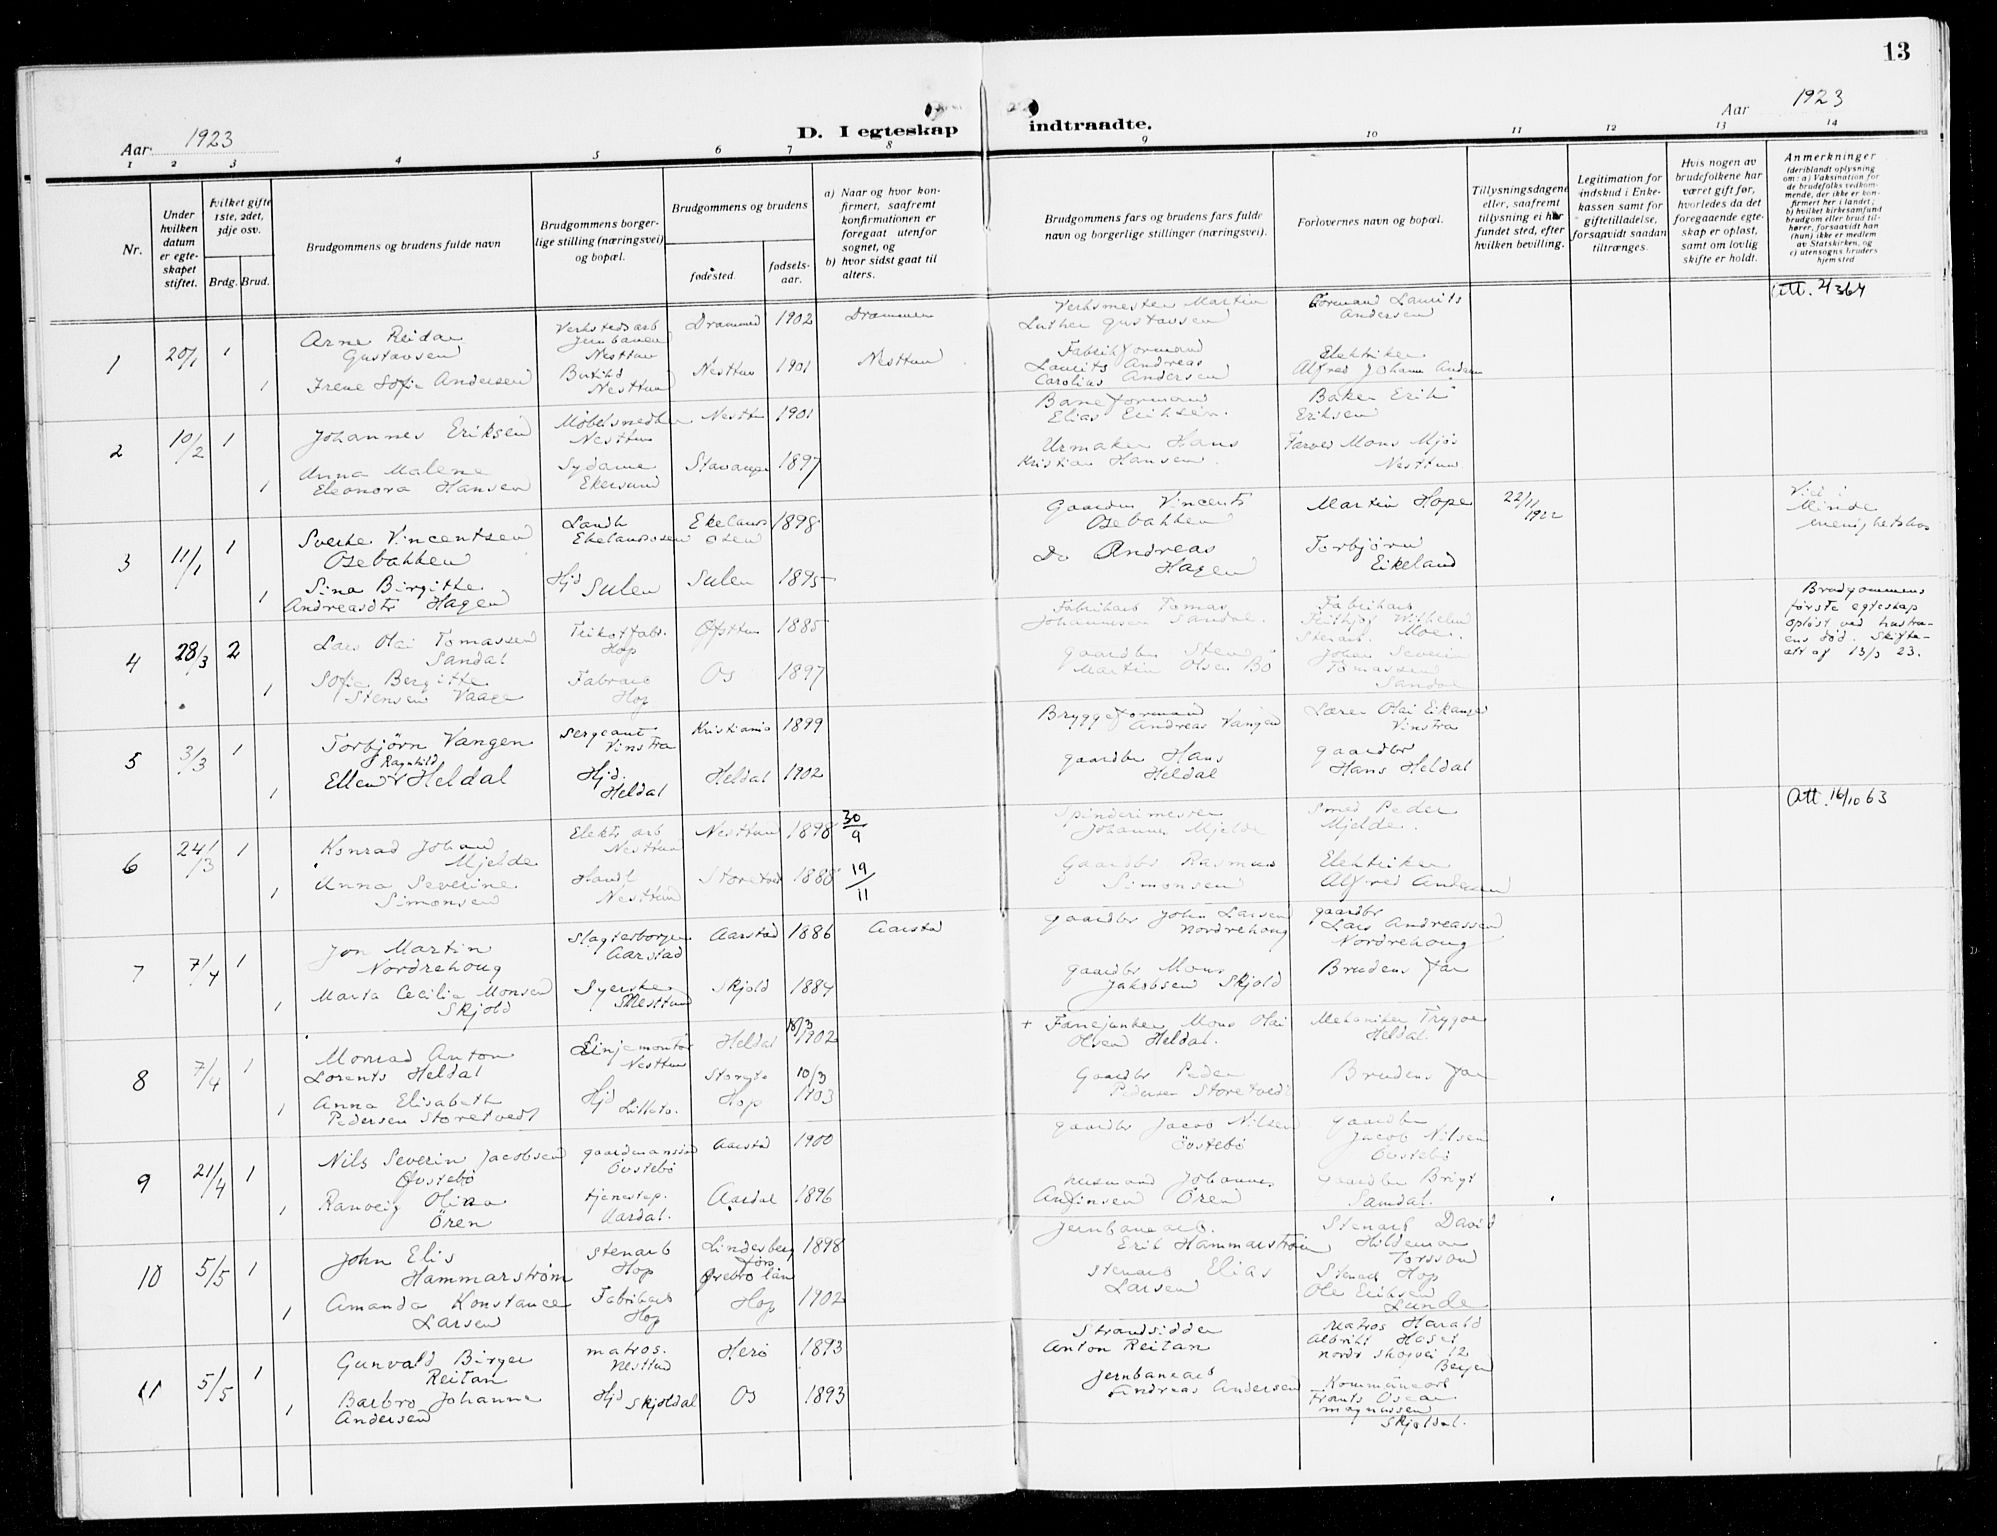 13
Aar 1923
D. I egteskap indtraadte.
Aar 1923
1 2 3 4 5 6 7 8 9 10 11 12 13 14
Nr.
Under hvilken datum er egteskapet stiftet.
hvilket gifte 1ste, 2det, 3dje osv.
Brdg. Brud.
Brudgommens og brudens fulde navn
Brudgommens borgerlige stilling (næringsvei) og bopæl.
Brudgommens og brudens
fødested.
fødselsaar.
a) Naar og hvor konfirmert, saafremt konfirmationen er foregaat utenfor sognet, og
b) hvor sidst gaat til alters.
Brudgommens fars og brudens fars fulde navn og borgerlige stillinger (næringsvei).
Forlovernes navn og bopæl.
Tillysningsdagene eller, saafremt tillysning ei har fundet sted, efter hvilken bevilling.
Legitimation for indskud i Enkekassen samt for giftetilladelse, forsaavidt saadan tiltrænges.
Hvis nogen av brudefolkene har været gift før, hvorledes da det foregaaende egteskap er opløst, samt om lovlig skifte er holdt.
Anmerkninger (deriblandt oplysning om: a) Vaksination for de brudefolks vedkommende, der ikke er konfirmert her i landet; b) hvilket kirkesamfund brudgom eller brud tilhører, forsaavidt han (hun) ikke er medlem av Statskirken, og c) utensogns bruders hjemsted
1 20/1 1
Arne Reidar Gustavsen
Verkstedsarb Jernbanen Nesttun
Drammen 1902 Drammen
Verksmester Martin Luther Gustavsen
Formand Laurits Andersen
Att. 4/3 64
1 Irene Sofie Andersen
Nesttun
Nesttun 1901 Nesttun
Fabrikformand Laurits Andreas Carolius Andersen
Elektriker Alfred Johann Andersen
2 10/2 1
Johannes Eriksen
Møbelsnedker Nesttun
Nesttun 1901
Baneformand Elias Eriksen.
Baker Erik Eriksen
1 Anna Malene Eleonora Hansen
Sydame Ekersund
Stavanger 1897
Urmaker Hans Kristian Hansen.
Farver Mons Mjøs Nesttun
3 11/1 1
Sverke Vincentsen Osebakken
Landh Ekelandsosen
Ekelandsosen 1898
Gaardbr Vincents Osebakken
Martin Hope
22/11 1922
Viet i Minde menighetshus
1 Sina Birgitte Andreasdtr Hagen
Hjd Sulen
Sulen 1895
Do Andreas Hagen
Torbjørn Eikeland
4 28/3 2
Lars Olai Tomassen Sandal
Trikotfabr. Hop
Øfsttun 1885
Fabrikarb Tomas Johannesen Sandal.
Fabrikarb Fritjof Wilhelm Moe.
Brudgommens første egteskap opløst ved hustruens død. Skifteatt af 13/3 23.
1 Sofie Bergitte Stensen Vaage
Fabrarb Hop
Os 1897
gaardbr Sten Martin Olsen Bö
Stenarb. Johan Severin Tomassen Sandal
5 3/3 1
Torbjørn Vangen
Sergeant Vinstra
Kristiania 1899
Bryggeformand Andreas Vangen
Lærer Olai Eikanger Vinstra
1 Ellen Ragnhild Heldal
Hjd. Heldal
Heldal 1902
gaardbr Hans Heldal
gaardbr Hans Heldal
6 24/3 1
Konrad Johan Mjelde
Elektr arb Nesttun
Nesttun 1898 30/9
Spinderimester Johannes Mjelde
Smed Peder Mjelde.
Att. 16/10 63
1 Anna Severine Simonsen
Handl Nesttun
Storetvedt 1888 19/11
Gaardbr Rasmus Simonsen
Elektriker Alfred Andersen
7 7/4 1
Jon Martin Nordrehoug
Slagterborger Aarstad
Aarstad 1886 Aarstad
gaardbr John Larsen Nordrehoug
gaardbr Lars Andreassen Nordrehoug
1 Marta Cecilie Monsen Skjold
Syerske Nesttun
Skjold 1884
gaardbr Mons Jakobsen Skjold
Brudens far
8 7/4 1
Monrad Anton Lorents Heldal
Linjemontör Nesttun
Heldal 18/3 1902
+ Fanejunker Mons Olai Olsen Heldal.
Mekaniker Trygve Heldal.
1 Anna Elisabeth Pedersen Storetvedt
Hjd
Hop 10/3 1903
Gaardbr Peder Pedersen Storetvedt
Brudens far
9 21/4 1
Nils Severin Jacobsen Øvstebö
gaardmannssön Øvstebö
Aarstad 1900
gaardbr Jacob Nilsen Övstebö
gaardbr Jacob Nilsen Øvstebö
1 Ranveig Olina Ören
tjenestep. Aardal.
Aardal 1896
husmand Johannes Anfinsen Ören
gaardbr Brigt Samdal.
10 5/5 1
John Elis Hammarström
stenarb Hop
Lindesberg förs. Ørebro län 1898
Jernbanearb. Erik Hammarström
Stenarb David Hildemar Torsson Hop
1 Amanda Konstance Larsen
Fabrikarb Hop
Hop 1902
stenarb Elias Larsen
Stenarb Ole Eriksen Lunde
11 5/5 1
Gunvald Birger Reitan
matros. Nesttun
Herö 1893
Strandsidder Anton Reitan
Matros Harald Albrikt Haset nordr skogvei 12 Bergen
1 Barbro Johanne Andersen
Hjd Skjoldal
Os 1893
Jernbanearb Andreas Andersen
Kommunearb Frants Oscar Magnussen Skjoldal.